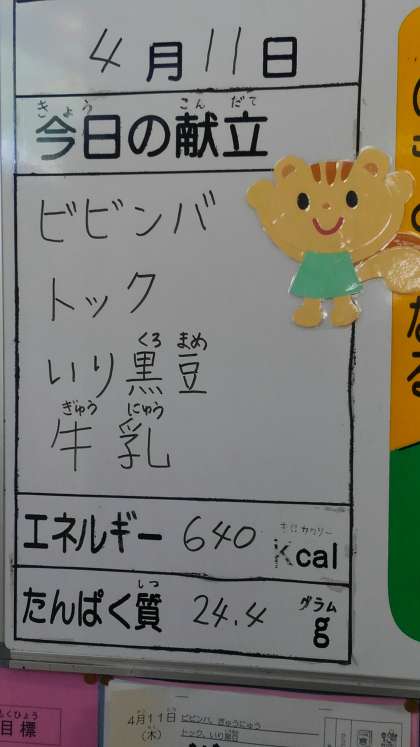 4月11日
きょう こんだて
今日の献立
ビビンバ
トック
くろ まめ
いり黒豆
ぎゅう にゅう
牛乳
エネルギー 640 キロカロリー Kcal
しつ
たんぱく質 24.4 グラム g
もくひょう
目標
4月11日
(木)
ビビンバ、ぎゅうにゅう
トック、いり黒豆